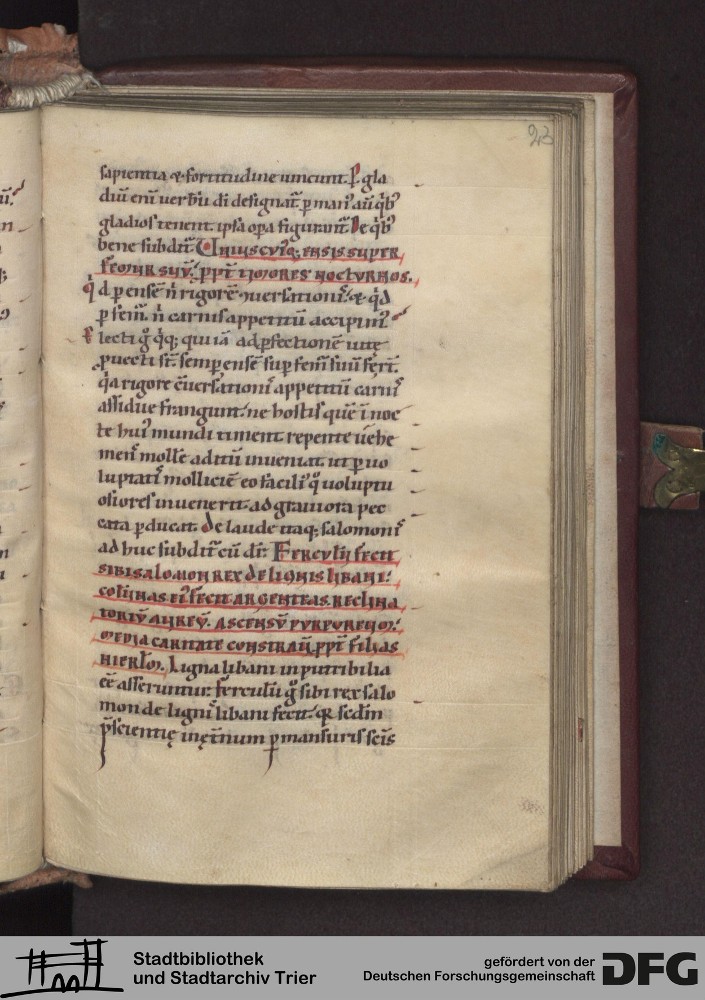 23
sapientia & fortitudine uincunt. P gla
diū eni uerbū di designat᷑. p manꝰ aū qͥbꝰ
gladios tenent. ipsa opa figurant᷑. De qͥbꝰ
bene subdit᷑. Uniuscuiꝰq; ensis super
femur suū. ppt timores nocturnos.
qͥd p ensē n̄ rigorē ꝯuersationiſ. & qͥd
p fem̄. n̄ carnis appetitū accipimꝰ.
Electi g̊ qͥq; qui iā ad pfectionē uitę
puecti st̄. semp ensē sup fem̄ suū fert̄.
qͥa rigore cūersationiſ appetitū carniſ
assidue frangunt. ne hostis quē ī noc
te huiꝰ mundi timent repente uehe
menſ molle aditū inueniat. ut p uo
luptatiſ molliciē eo faciliꝰ q̊ uoluptu
osiores inuenerit. ad grauiora pec
cata pducat. De laude itaq; salomoniſ
ad huc subdit᷑ cū dr̄. Ferculū fecit
sibi salomon rex de lignis libani.
colūnas eiꝰ fecit argenteas. reclina
toriū aureū. ascensū purpureum.
media caritate constrauit. ppt filias
hierlm̄. Ligna libani inputribilia
eē asseruntur. ferculū g̊ sibi rex salo
mon de ligniſ libani fecit. quia sedm̄
p̄scientię in ęt̄num p mansuris scīs
Stadtbibliothek
und Stadtarchiv Trier
gefördert von der
Deutschen Forschungsgemeinschaft
DFG